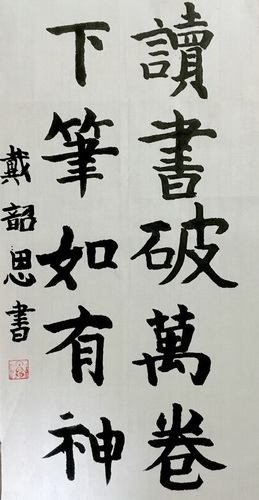 讀書破萬卷
下筆如有神
戴韶思書